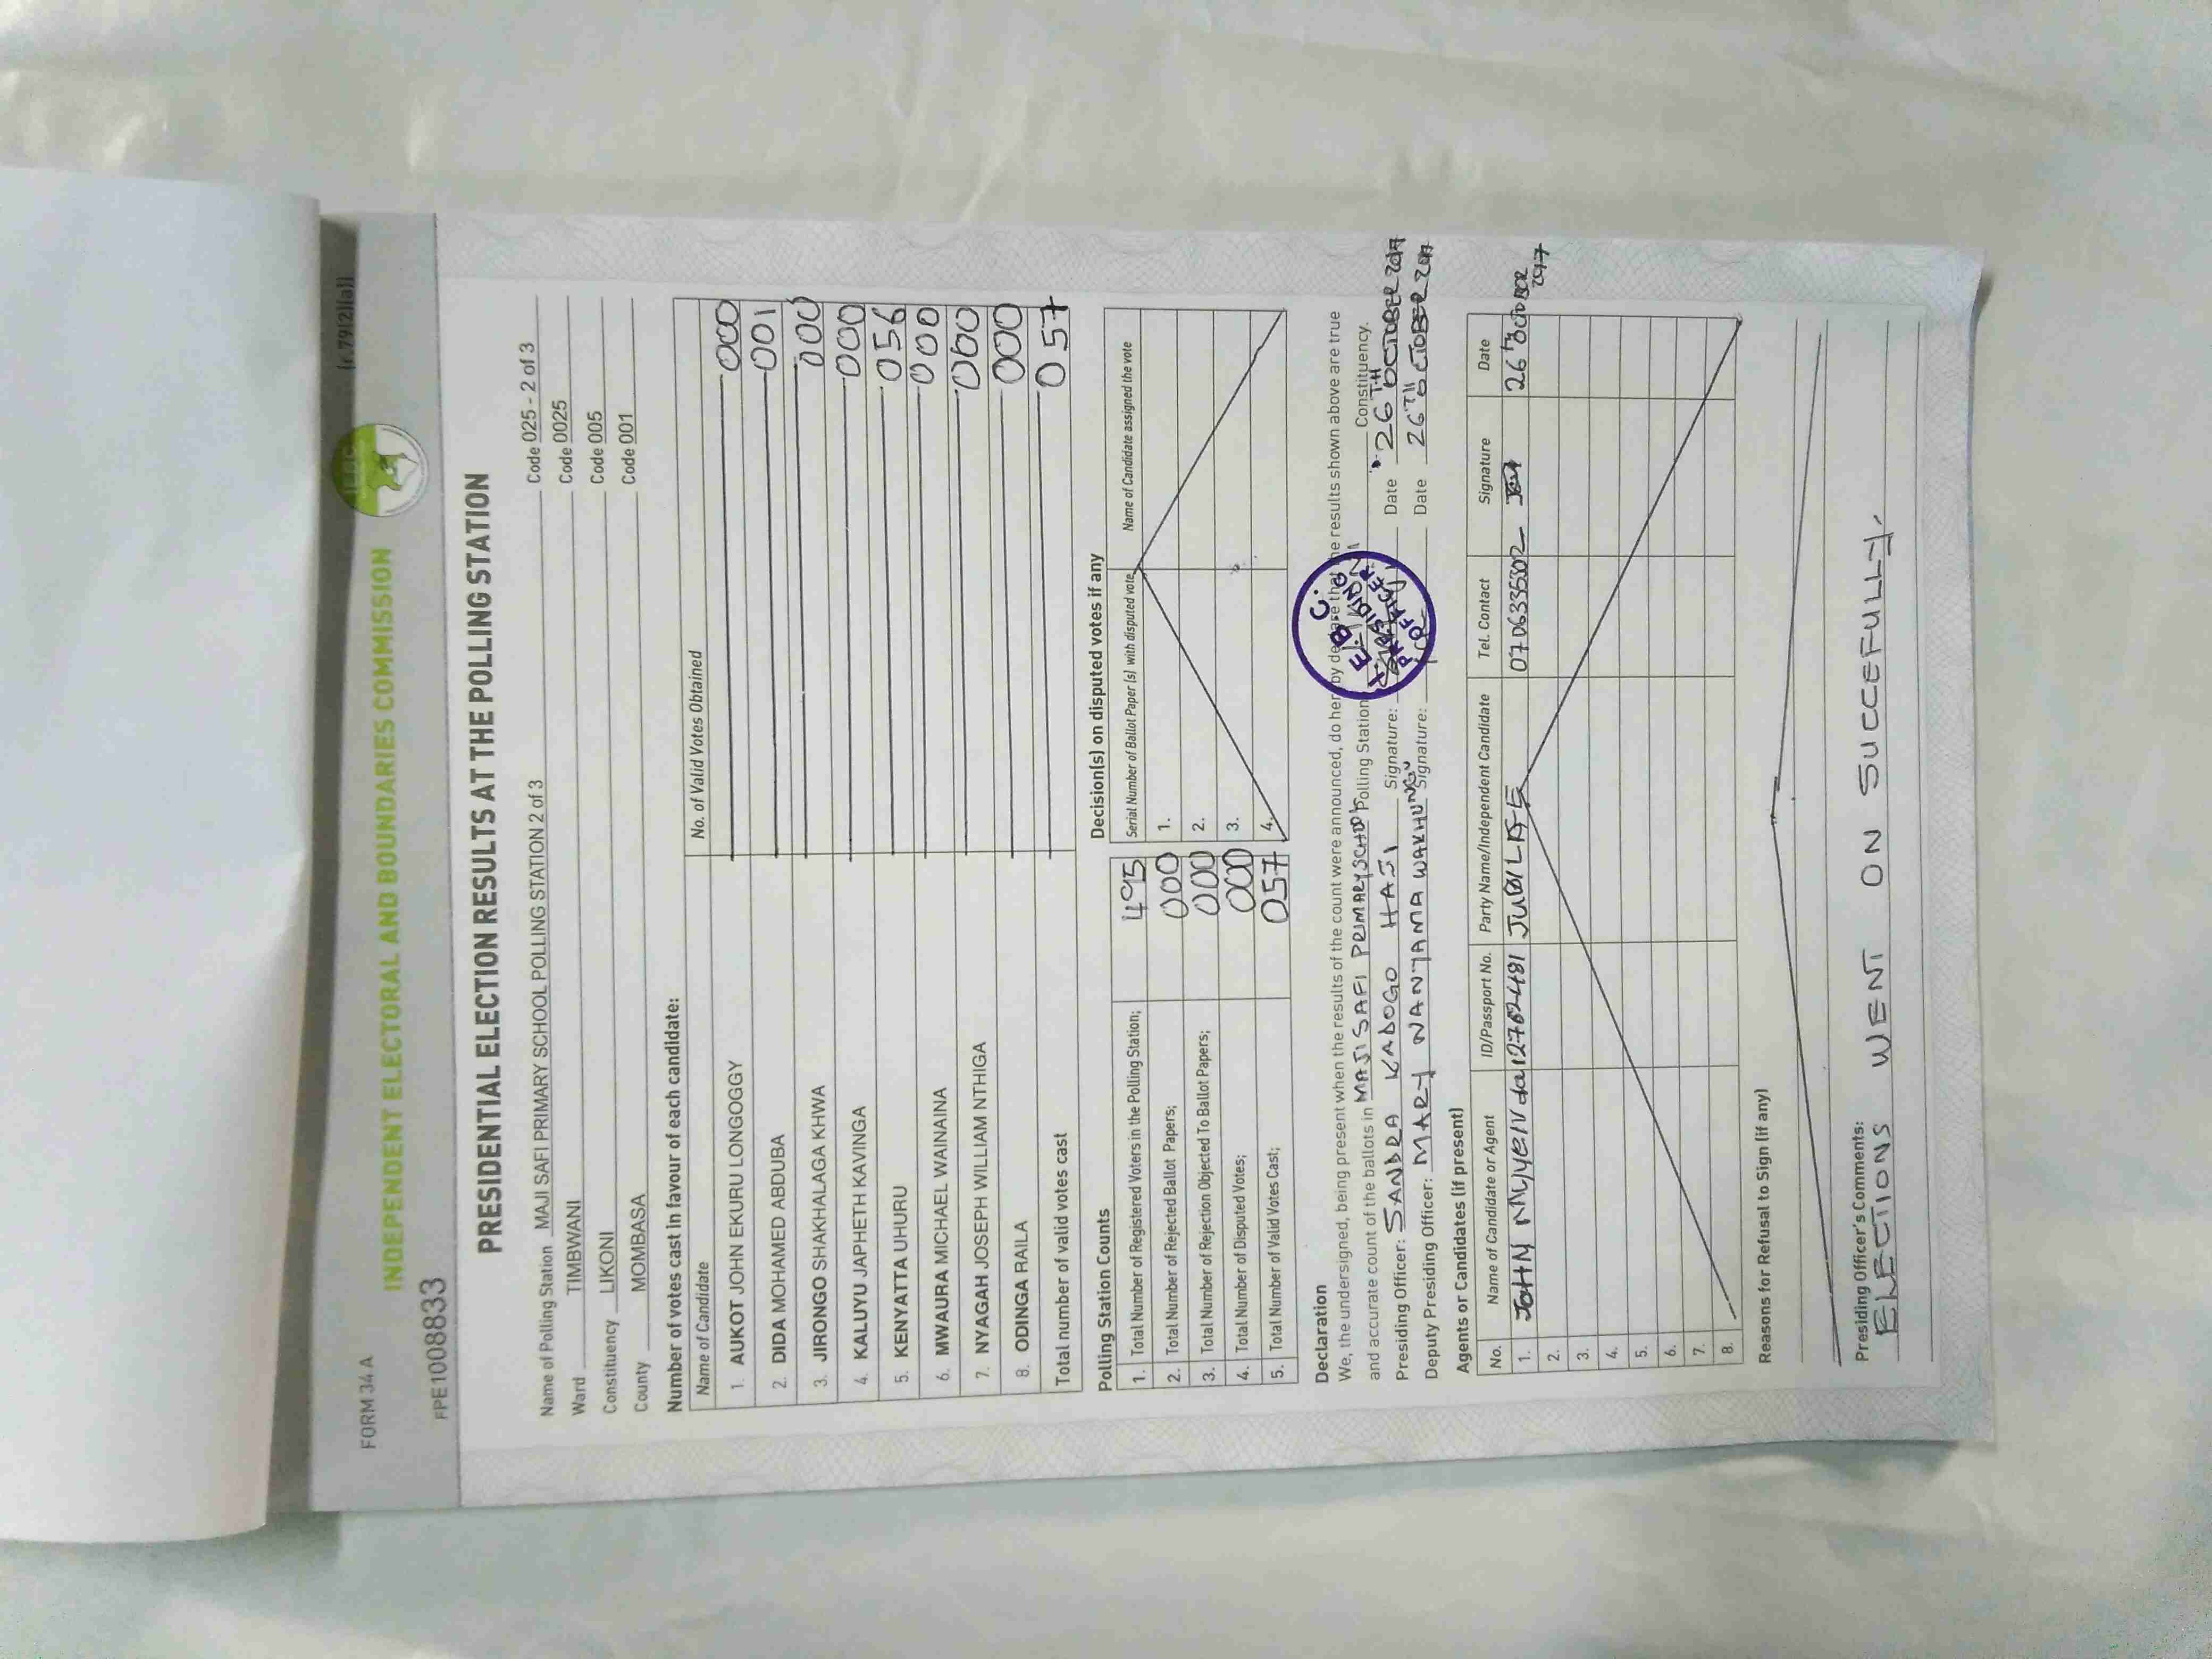 FORM 34 A (r.79(2)(a))
IEBC
INDEPENDENT ELECTORAL AND BOUNDARIES COMMISSION
FPE1008833
PRESIDENTIAL ELECTION RESULTS AT THE POLLING STATION
Name of Polling Station MAJI SAFI PRIMARY SCHOOL POLLING STATION 2 of 3 Code 025 - 2 of 3
Ward TIMBWANI Code 0025
Constituency LIKONI Code 005
County MOMBASA Code 001
Number of votes cast in favour of each candidate:
Name of Candidate No. of Valid Votes Obtained
1. AUKOT JOHN EKURU LONGOGGY 000
2. DIDA MOHAMED ABDUBA 001
3. JIRONGO SHAKHALAGA KHWA 000
4. KALUYU JAPHETH KAVINGA 000
5. KENYATTA UHURU 056
6. MWAURA MICHAEL WAINAINA 000
7. NYAGAH JOSEPH WILLIAM NTHIGA 000
8. ODINGA RAILA 000
Total number of valid votes cast 057
Polling Station Counts
1. Total Number of Registered Voters in the Polling Station; 495
2. Total Number of Rejected Ballot Papers; 000
3. Total Number of Rejection Objected To Ballot Papers; 000
4. Total Number of Disputed Votes; 000
5. Total Number of Valid Votes Cast; 057
Decision(s) on disputed votes if any
Serial Number of Ballot Paper (s) with disputed vote Name of Candidate assigned the vote
1.
2.
3.
4.
Declaration
We, the undersigned, being present when the results of the count were announced, do hereby declare that the results shown above are true
and accurate count of the ballots in MAJI SAFI PRIMARY SCHOOL Polling Station Constituency.
Presiding Officer: SANDRA KADOGO HAJI Signature: Date 26TH OCTOBER 2017
Deputy Presiding Officer: MARY NANJAMA WAKHUNGU Signature: Date 26TH OCTOBER 2017
I.E.B.C.
PRESIDING
OFFICER
Agents or Candidates (if present)
No. Name of Candidate or Agent ID/Passport No. Party Name/Independent Candidate Tel. Contact Signature Date
1. JOHN 12762481 JUBILEE 0706335302 26th OCTOBER 2017
2.
3.
4.
5.
6.
7.
8.
Reasons for Refusal to Sign (if any)
Presiding Officer's Comments:
ELECTIONS WENT ON SUCCEFULLY.